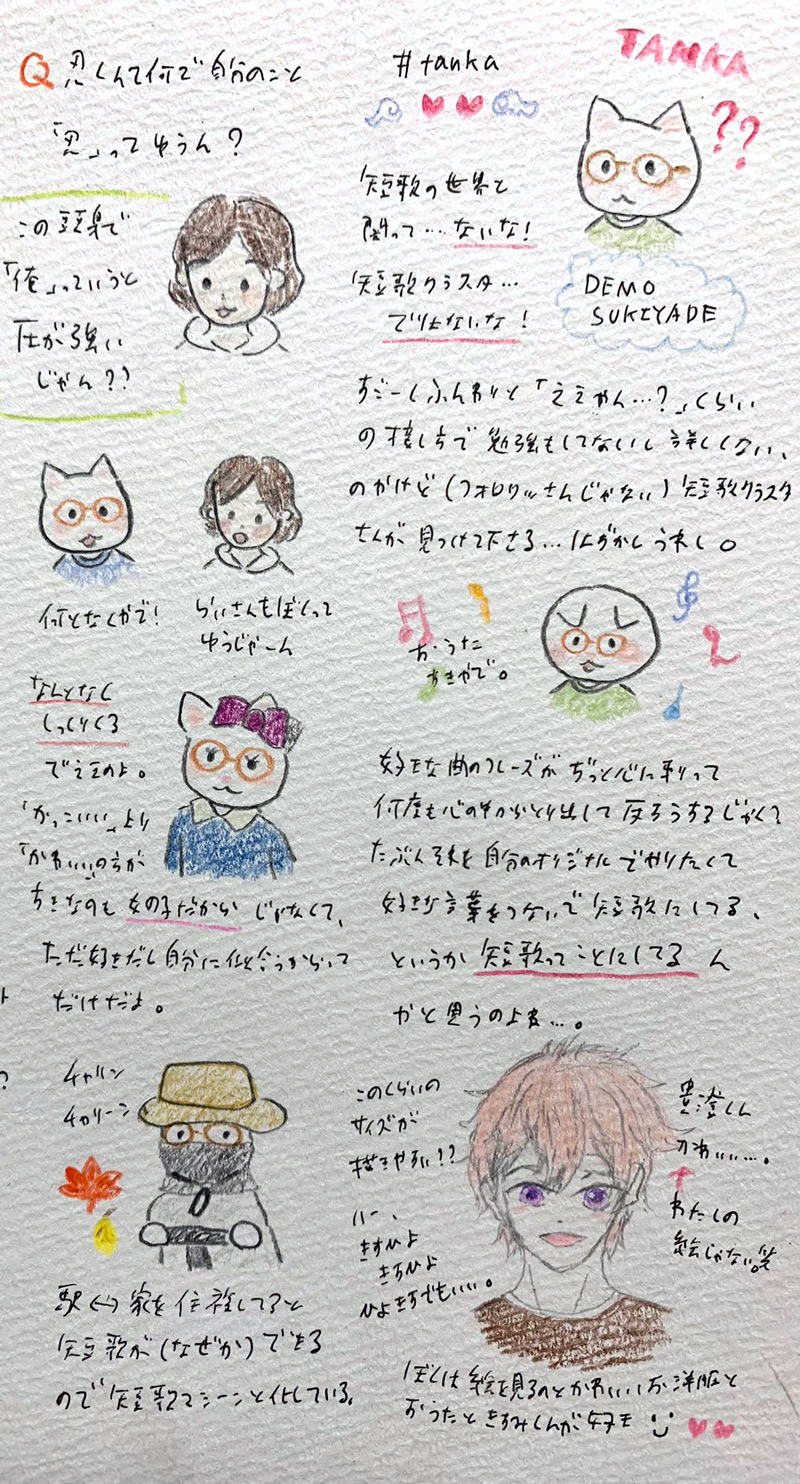 Q 忍くんて何で自分のこと
「忍」ってゆうん？
この頭身で
「俺」っていうと
圧が強い
じゃん??
何となくかで!
らいさんもぼくって
ゆうじゃーん
なんとなく
しっくりくる
でええのよ。
「かっこいい」より
「かわいい」の方が
すきなのも 女の子だから じゃなくて、
ただ好きだし自分に似合うからって
だけだよ。
チャリン
チャリーン
駅↔家を往復してると
短歌が(なぜか)できる
ので短歌マシーンと化している。
#tanka
TANKA
??
短歌の世界と
関って…ないな!
短歌クラスタ…
でもないな!
DEMO
SUKIYADE
すごーくふんわりと「ええやん…?」くらい
の接し方で 勉強もしてないし 詳しくない、
のだけど (フォロワッさんじゃない) 短歌クラスタ
さんが 見つけて下さる… はずかしうれし。
お・うた
すきやで。
好きな曲のフレーズが ずっと心に残って
何度も心の中からとり出して 反すうするじゃん?
たぶんそれを自分のオリジナルでやりたくて
好きな言葉をつないで短歌にしてる、
というか 短歌ってことにしてる ん
かと思うのよね…。
このくらいの
サイズが
描きやすい??
貴澄くん
かわいい…。
わたしの
絵じゃない。笑
いー、
きすひよ
きすひよ
ひよきすでもいい。
ぼくは絵を見るのとかわいいお洋服と
おうたときすみくんが好き